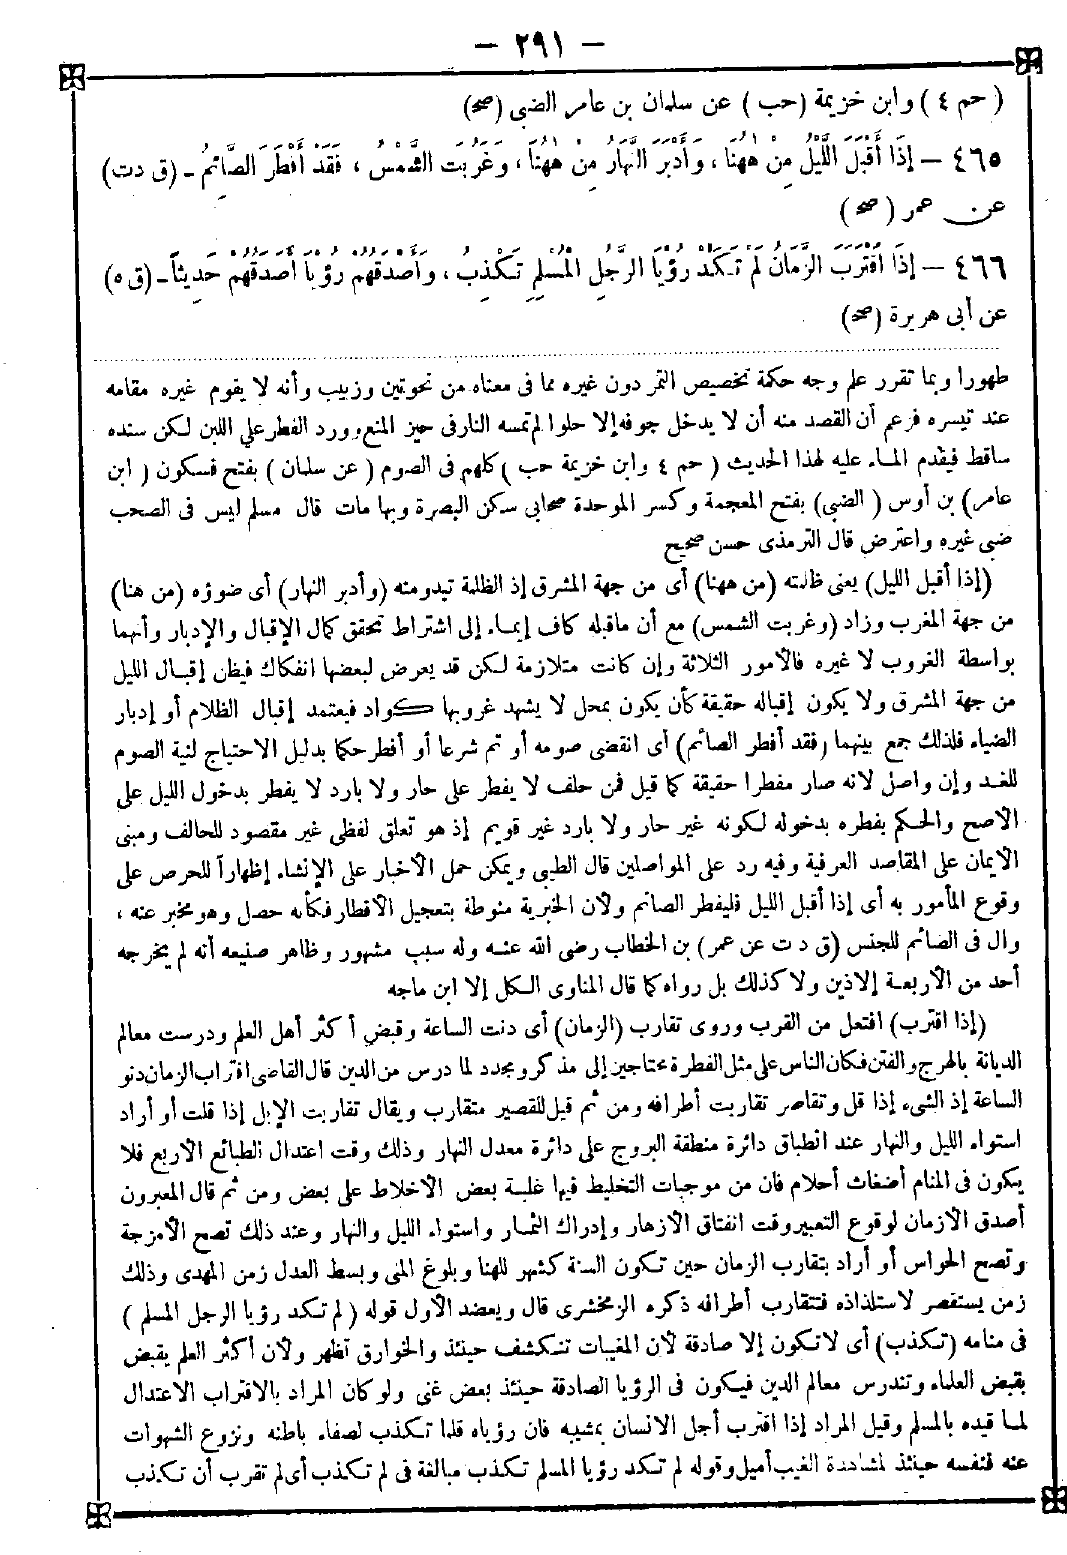 – ٢٩١ –
( حم ٤ ) وابن خزيمة (حب ) عن سلمان بن عامر الضبى (صحـ)
٤٦٥ – إِذَا أَقْبَلَ اللَّيْلُ مِنْ هٰهُنَا ، وَأَدْبَرَ النَّهَارُ مِنْ هٰهُنَا ، وَغَرَبَتِ الشَّمْسُ ، فَقَدْ أَفْطَرَ الصَّائِمُ ـ (ق د ت)
عن عمر ( صحـ )
٤٦٦ – إِذَا اقْتَرَبَ الزَّمَانُ لَمْ تَكَدْ رُؤْيَا الرَّجُلِ الْمُسْلِمِ تَكْذِبُ ، وَأَصْدَقُهُمْ رُؤْيَا أَصْدَقُهُمْ حَدِيثاً ـ (ق ه)
عن أبى هريرة (صحـ)
طهورا وبما تقرر علم وجه حكمة تخصيص التمر دون غيره مما فى معناه من نحوتين وزبيب وأنه لا يقوم غيره مقامه
عند تيسره فزعم أن القصد منه أن لا يدخل جوفه إلا حلوا لم تمسه النار فى حيز المنع وورد الفطر على اللبن لكن سنده
ساقط فيقدم الماء عليه لهذا الحديث ( حم ٤ وابن خزيمة حب ) كلهم فى الصوم ( عن سلمان ) بفتح فسكون ( ابن
عامر) بن أوس ( الضبى) بفتح المعجمة وكسر الموحدة صحابى سكن البصرة وبها مات قال مسلم ليس فى الصحب
ضبى غيره واعترض قال الترمذى حسن صحيح
(إذا أقبل الليل) يعنى ظلمته (من ههنا) أى من جهة المشرق إذ الظلمة تبدو منه (وأدبر النهار) أى ضوؤه (من هنا)
من جهة المغرب وزاد (وغربت الشمس) مع أن ماقبله كاف إيماء إلى اشتراط تحقق كمال الإقبال والإدبار وأنهما
بواسطة الغروب لا غيره فالأمور الثلاثة وإن كانت متلازمة لكن قد يعرض لبعضها انفكاك فيظن إقبال الليل
من جهة المشرق ولا يكون إقباله حقيقة كأن يكون بمحل لا يشهد غروبها كواد فيعتمد إقبال الظلام أو إدبار
الضياء فلذلك جمع بينهما (فقد أفطر الصائم) أى انقضى صومه أو تم شرعا أو أفطر حكما بدليل الاحتياج لنية الصوم
للغد وإن واصل لانه صار مفطرا حقيقة كما قيل فمن حلف لا يفطر على حار ولا بارد لا يفطر بدخول الليل على
الاصح والحكم بفطره بدخوله لكونه غير حار ولا بارد غير قويم إذ هو تعلق لفظى غير مقصود للحالف ومبنى
الايمان على المقاصد العرفية وفيه رد على المواصلين قال الطيبى ويمكن حمل الأخبار على الإنشاء إظهاراً للحرص على
وقوع المأمور به أى إذا أقبل الليل فليفطر الصائم ولأن الخيرية منوطة بتعجيل الأفطار فكأنه حصل وهو مخبر عنه ،
وال فى الصائم للجنس (ق د ت عن عمر) بن الخطاب رضى الله عنه وله سبب مشهور وظاهر صنيعه أنه لم يخرجه
أحد من الأربعة إلا ذين ولا كذلك بل رواه كما قال المناوى الكل إلا ابن ماجه
(إذا اقترب) افتعل من القرب وروى تقارب (الزمان) أى دنت الساعة وقبض أكثر أهل العلم ودرست معالم
الديانة بالهرج والفتن فكان الناس على مثل الفطرة محتاجين إلى مذكر ومجدد لما درس من الدين قال القاضى اقتراب الزمان دنو
الساعة إذ الشىء إذا قل وتقاصر تقاربت أطرافه ومن ثم قيل للقصير متقارب ويقال تقاربت الإبل إذا قلت أو أراد
استواء الليل والنهار عند انطباق دائرة منطقة البروج على دائرة معدل النهار وذلك وقت اعتدال الطبائع الأربع فلا
يكون فى المنام أضغاث أحلام فان من موجبات التخليط فيها غلبة بعض الاخلاط على بعض ومن ثم قال المعبرون
أصدق الازمان لوقوع التعبير وقت انفتاق الازهار وإدراك الثمار واستواء الليل والنهار وعند ذلك تصح الأمزجة
وتصح الحواس أو أراد بتقارب الزمان حين تكون السنة كشهر للهنا وبلوغ المنى وبسط العدل زمن المهدى وذلك
زمن يستقصر لاستلذاذه فتتقارب أطرافه ذكره الزمخشرى قال ويعضد الأول قوله ( لم تكد رؤيا الرجل المسلم )
فى منامه (تكذب) أى لا تكون إلا صادقة لأن المغيبات تنكشف حينئذ والخوارق تظهر ولأن أكثر العلم يقبض
بقبض العلماء وتندرس معالم الدين فيكون فى الرؤيا الصادقة حينئذ بعض غنى ولو كان المراد بالاقتراب الاعتدال
لما قيده بالمسلم وقيل المراد إذا اقترب أجل الانسان بمشيبه فان رؤياه قلما تكذب لصفاء باطنه ونزوع الشهوات
عنه فنفسه حينئذ لمشاهدة الغيب أميل وقوله لم تكد رؤيا المسلم تكذب مبالغة فى لم تكذب أى لم تقرب أن تكذب